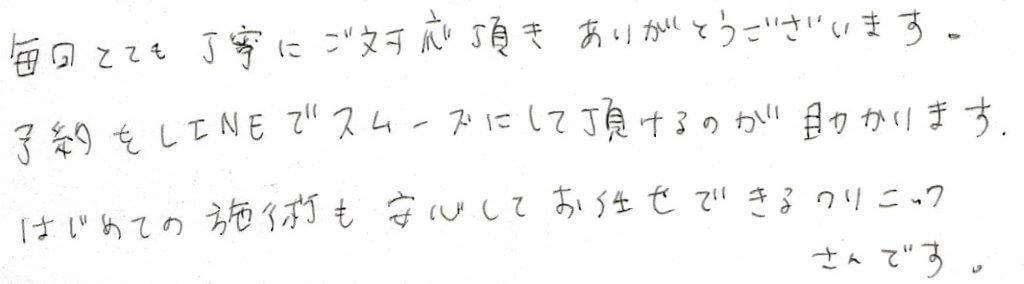 毎回とても丁寧にご対応頂きありがとうございます。
予約をLINEでスムーズにして頂けるのが助かります.
はじめての施術も安心してお任せできるクリニック
さんです。